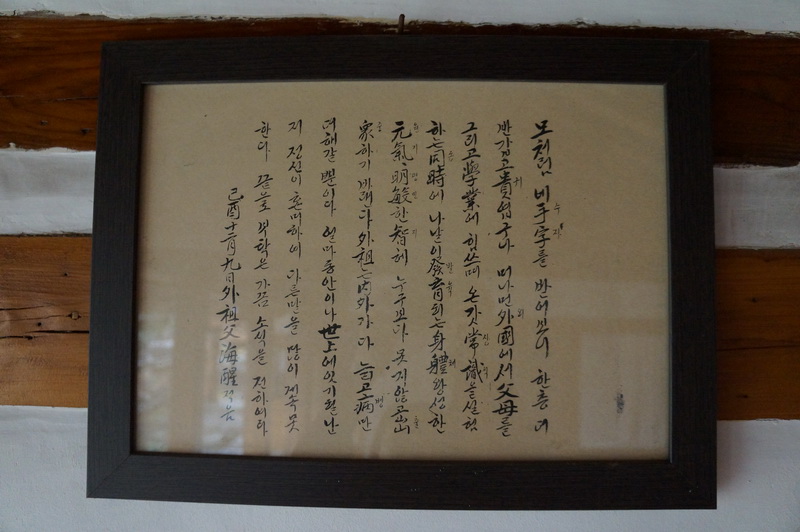 모처럼 네 手字를 받어보니 한층 더
반갑고 貴엽구나 머나먼 外國에서 父母를
그리고 學業에 힘쓰며 온갓 常識을 실험
하는 同時에 나날이 發育되는 身體 왕성한
元氣 明敏한 智혜 누구보다 못지않고 出
衆하기 바랜다 外祖는 內外가 다 늙고 病만
더해갈 뿐이다 얼마동안이나 世上에 잇기될난
지 정신이 혼미하여 다른 말을 많이 계속 못
한다 끝으로 부탁은 가끔 소식을 전하여다
己酉 十二月 九日 外祖父 海醒 적음